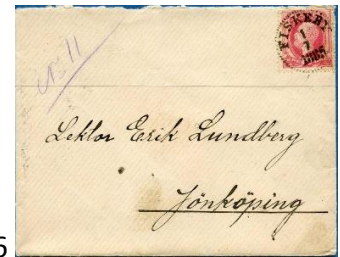 No 11
FISKEBY
1
7
1885
Lektor Erik Lundberg
Jönköping
6